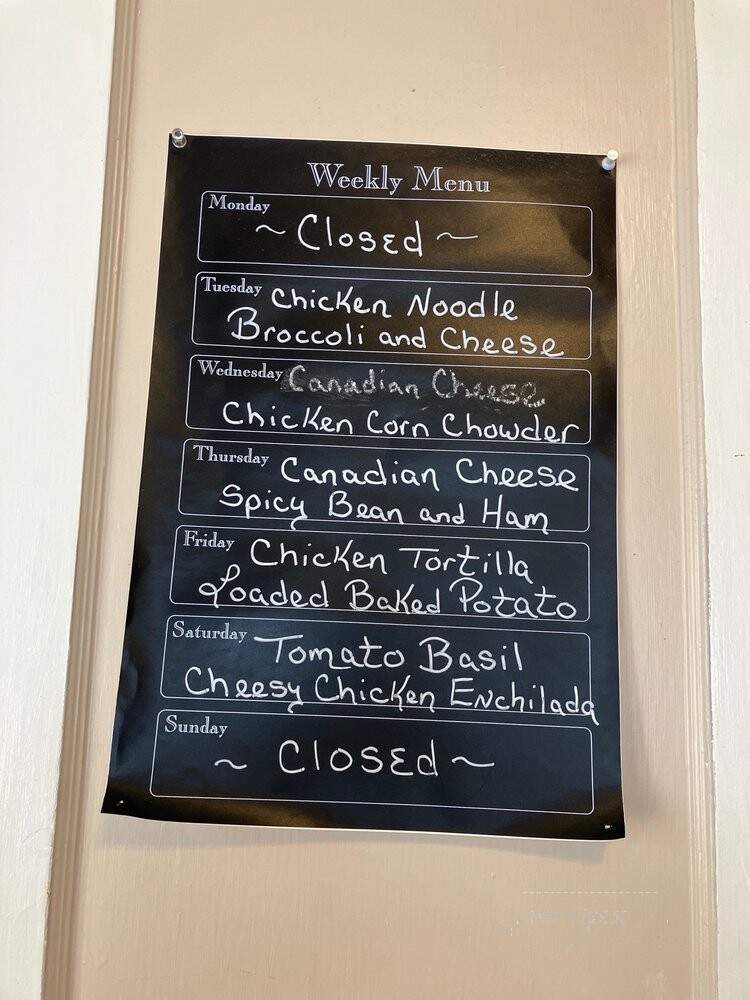 Weekly Menu
Monday
~ Closed ~
Tuesday Chicken Noodle
Broccoli and Cheese
Wednesday Canadian Cheese
Chicken Corn Chowder
Thursday Canadian Cheese
Spicy Bean and Ham
Friday Chicken Tortilla
Loaded Baked Potato
Saturday Tomato Basil
Cheesy Chicken Enchilada
Sunday
~ Closed ~